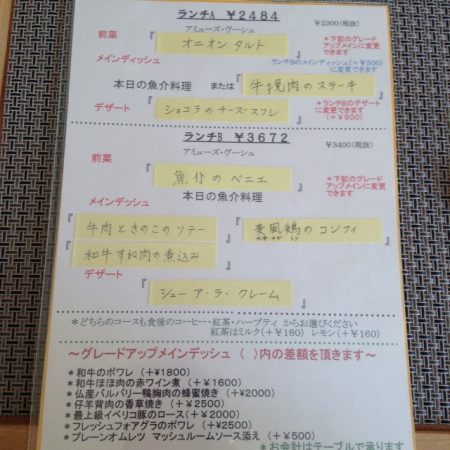 ランチA ￥2484
￥2300(税抜)
アミューズ・ヴーシュ
前菜
『オニオン タルト』
＊下記のグレードアップメインに変更できます
メインディッシュ
ランチBのメインディッシュ(+￥500)に変更できます
本日の魚介料理 または『牛挽肉のステーキ』
デザート
『ショコラのチーズスフレ』
＊ランチBのデザートに変更できます(+￥500)
ランチB ￥3672
￥3400(税抜)
アミューズ・ヴーシュ
前菜
『魚介のベニエ』
＊下記のグレードアップメインに変更できます
メインディッシュ
本日の魚介料理
『牛肉ときのこのソテー』
『麦風鶏のコンフィ』
『和牛すね肉の煮込み』
デザート
『シュー ア・ラ・クレーム』
＊どちらのコースも食後のコーヒー・紅茶・ハーブティ からお選びください
紅茶はミルク(+￥160) レモン(+￥160)
～グレードアップメインデッシュ ( )内の差額を頂きます～
＊和牛のポワレ (+￥1800)
＊和牛ほほ肉の赤ワイン煮 (+￥1600)
＊仏産バルバリー鴨胸肉の蜂蜜焼き (+￥2000)
＊仔羊背肉の香草焼き (+￥2500)
＊最上級イベリコ豚のロース(+￥2000)
＊フレッシュフォアグラのポワレ (+￥2500)
＊プレーンオムレツ マッシュルームソース添え (+￥500)
＊お会計はテーブルで承ります